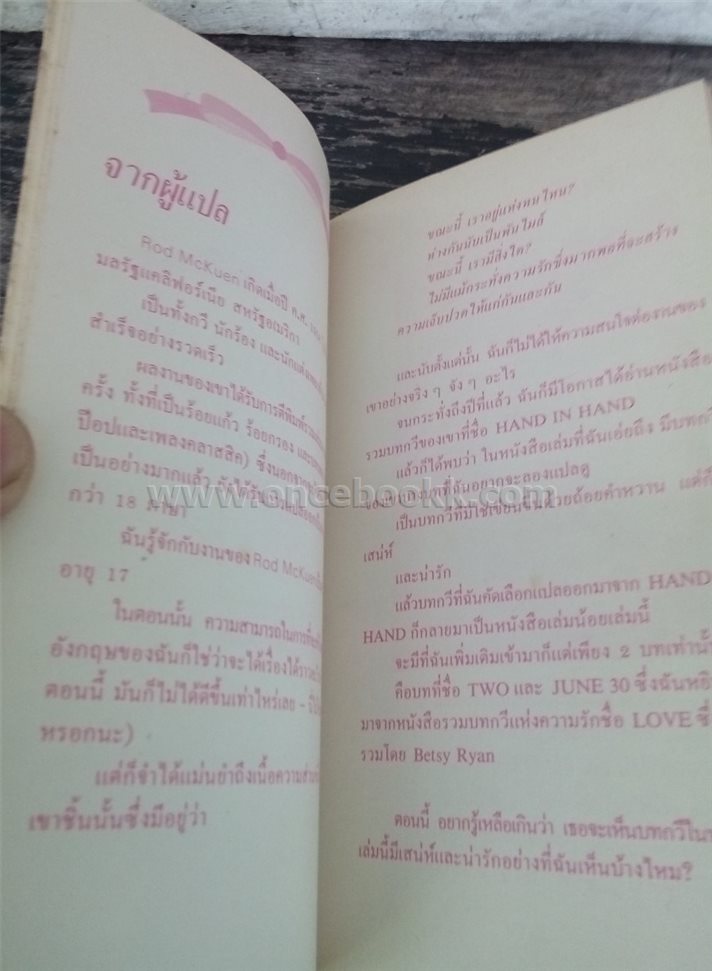 จากผู้แปล
Rod McKuen เกิดเมื่อปี ค.ศ.
มลรัฐแคลิฟอร์เนีย สหรัฐอเมริกา
เป็นทั้งกวี นักร้อง และนักแต่งเพลง
สำเร็จอย่างรวดเร็ว
ผลงานของเขาได้รับการตีพิมพ์
ครั้ง ทั้งที่เป็นร้อยแก้ว ร้อยกรอง และ
ป๊อปและเพลงคลาสสิค) ซึ่งนอกจาก
เป็นอย่างมากแล้ว ยังได้รับ
กว่า 18 ภาษา
ฉันรู้จักกับงานของ Rod McKuen
อายุ 17
ในตอนนั้น ความสามารถในการ
อังกฤษของฉันก็ใช่ว่าจะได้เรื่องได้ราว
ตอนนี้ มันก็ไม่ได้ดีขึ้นเท่าไหร่เลย -
หรอกนะ)
แต่ก็จำได้แม่นยำถึงเนื้อความ
เขาชิ้นนั้นซึ่งมีอยู่ว่า
ขณะนี้ เราอยู่แห่งหนไหน?
ห่างกันนับเป็นพันไมล์
ขณะนี้ เรามีสิ่งใด?
ไม่มีแม้กระทั่งความรักซึ่งมากพอที่จะสร้าง
ความเจ็บปวดให้แก่กันและกัน
และนับตั้งแต่นั้น ฉันก็ไม่ได้ให้ความสนใจต่องานของ
เขาอย่างจริง ๆ จัง ๆ อะไร
จนกระทั่งปีที่แล้ว ฉันก็มีโอกาสได้อ่านหนังสือ
รวมบทกวีของเขาที่ชื่อ HAND IN HAND
แล้วก็ได้พบว่า ในหนังสือเล่มที่ฉันเอ่ยถึง มีบทกวี
ของเขาบางบทที่ฉันอยากจะลองแปลดู
เป็นบทกวีที่มิใช่เขียนขึ้นด้วยถ้อยคำหวาน แต่ก็
เสน่ห์
และน่ารัก
แล้วบทกวีที่ฉันคัดเลือกแปลออกมาจาก HAND
HAND ก็กลายมาเป็นหนังสือเล่มน้อยเล่มนี้
จะมีที่ฉันเพิ่มเติมเข้ามาก็แต่เพียง 2 บทเท่านั้น
คือบทที่ชื่อ TWO และ JUNE 30 ซึ่งฉันหยิบ
มาจากหนังสือรวมบทกวีแห่งความรักชื่อ LOVE ซึ่ง
รวมโดย Betsy Ryan
ตอนนี้ อยากรู้เหลือเกินว่า เธอจะเห็นบทกวีใน
เล่มนี้มีเสน่ห์และน่ารักอย่างที่ฉันเห็นบ้างไหม?
www.oncebookk.com